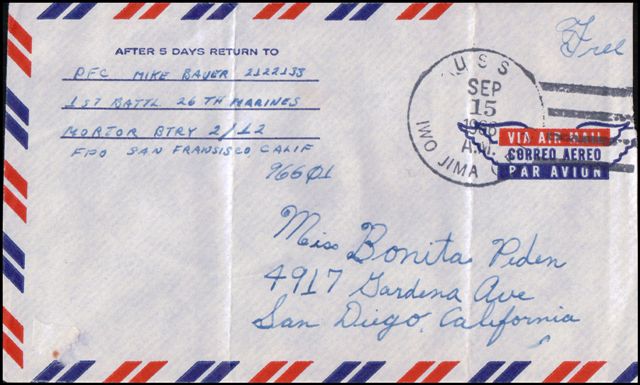 AFTER 5 DAYS RETURN TO
PFC MIKE BAUER 2122133
1ST BATTL 26TH MARINES
MORTOR BTRY 2/12
FPO SAN FRANSISCO CALIF
96601
USS
SEP
15
A.M.
IWO JIMA
Free
VIA AIR MAIL
CORREO AEREO
PAR AVION
Miss Bonita Peden
4917 Gardena Ave
San Diego, California